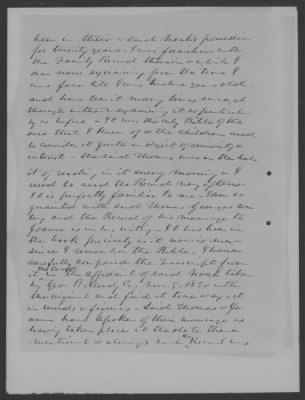 been in their & said Noah's possession
for twenty years - I was familiar with
the Family Record therein & which I
am now examining from the time I
was four till I was twelve years old
and have seen it many times since, al
though without examining it so particul
ly as before - It was the only Bible of that
sure that I knew of & the children used
to consider it quite an object of curiosity &
interest - the said Thomas was in the hab
it of reading in it every morning & I
used to read the Record very often -
It is perfectly familiar to me - I am ac
quainted with said Thomas Georges wri
ting and the Record of his marriage to
Joanna is in his writing - It has been in
the book precisely as it now is ever
since I remember the Bible - I have
carefully compared the transcript from
it in the Affidavit of said Noah taken
by Geo. Esq. Nov. 5. 1850 with
the original and find it true & exact
in words & figures - Said Thomas & Jo
anna have spoken of their marriage as
having taken place at the date there
mentioned & always said the Record was